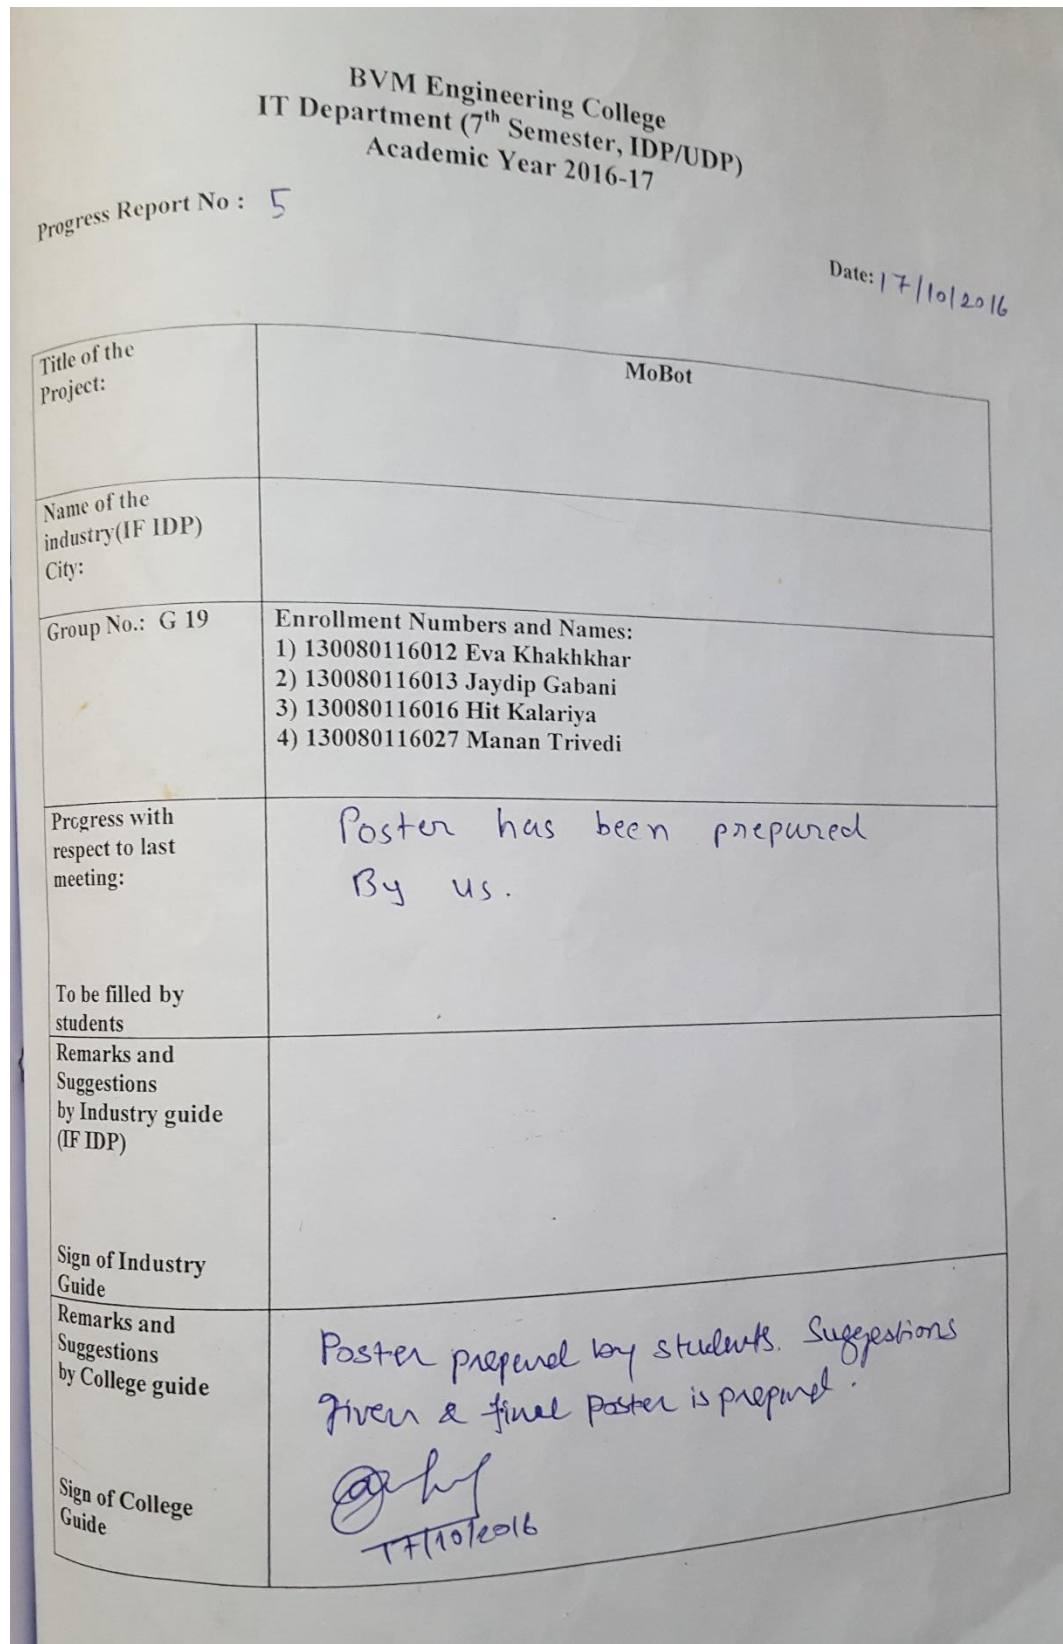 BVM Engineering College
IT Department (7th Semester, IDP/UDP)
Academic Year 2016-17
Progress Report No : 5
Date: 17/10/2016
Title of the
Project:
MoBot
Name of the
industry(IF IDP)
City:
Group No.: G 19
Enrollment Numbers and Names:
1) 130080116012 Eva Khakhkhar
2) 130080116013 Jaydip Gabani
3) 130080116016 Hit Kalariya
4) 130080116027 Manan Trivedi
Progress with
respect to last
meeting:
Poster has been prepared
By us.
To be filled by
students
Remarks and
Suggestions
by Industry guide
(IF IDP)
Sign of Industry
Guide
Remarks and
Suggestions
by College guide
Poster prepared by students. Suggestions
given & final poster is prepared.
Sign of College
Guide
17/10/2016